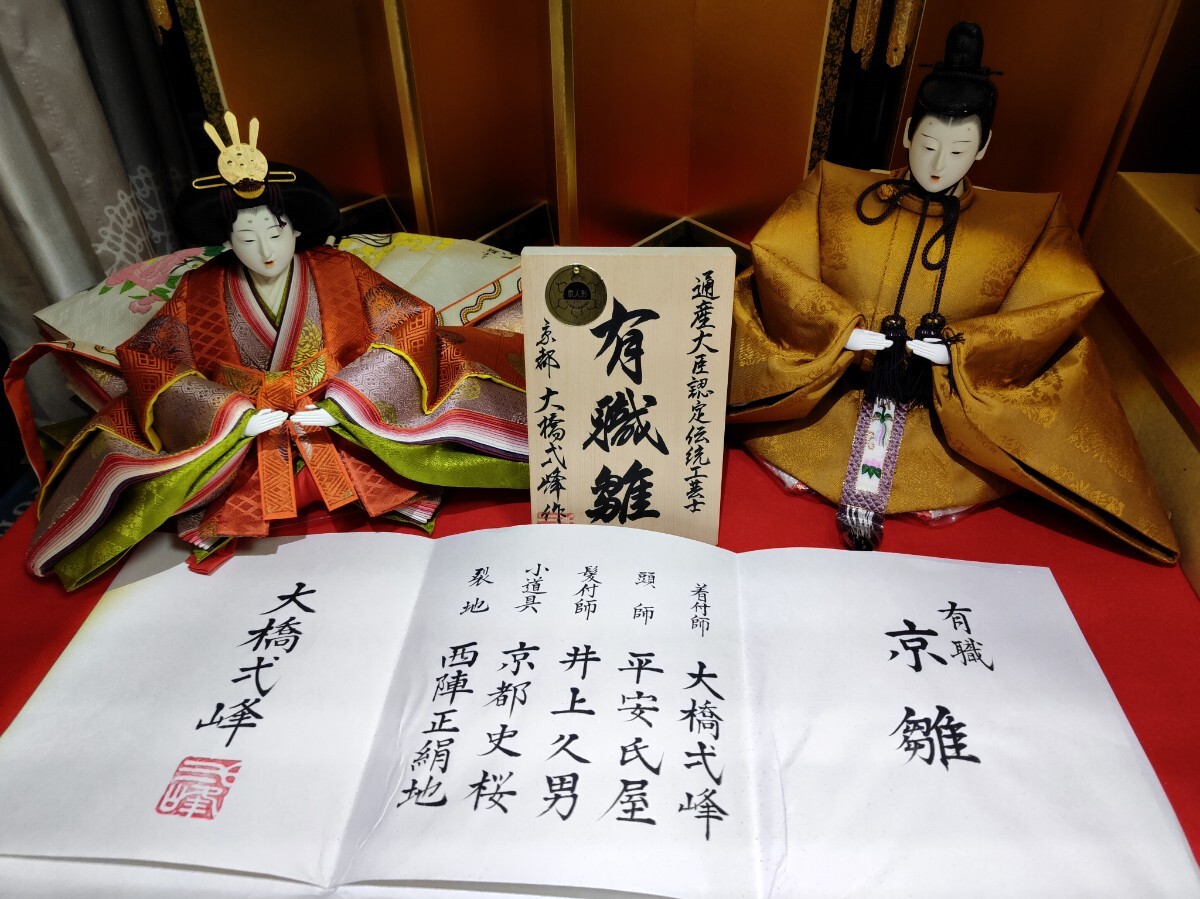 通産大臣認定伝統工芸士
有職雛
京都 大橋弌峰作
京人形
有職
京雛
着付師 大橋弌峰
頭師 平安氏屋
髪付師 井上久男
小道具 京都史桜
裂地 西陣正絹地
大橋弌峰
弌峰